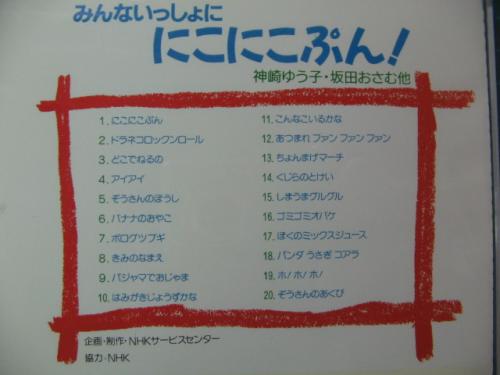 みんないっしょに
にこにこぷん!
神崎ゆう子・坂田おさむ他
1. にこにこぷん
2. ドラネコロックンロール
3. どこでねるの
4. アイアイ
5. ぞうさんのぼうし
6. バナナのおやこ
7. ボログツブギ
8. きみのなまえ
9. パジャマでおじゃま
10. はみがきじょうずかな
11. こんなこいるかな
12. あつまれ ファン ファン ファン
13. ちょんまげマーチ
14. くじらのとけい
15. しまうまグルグル
16. ゴミゴミオバケ
17. ぼくのミックスジュース
18. パンダ うさぎ コアラ
19. ホ! ホ! ホ!
20. ぞうさんのあくび
企画・制作・NHKサービスセンター
協力・NHK